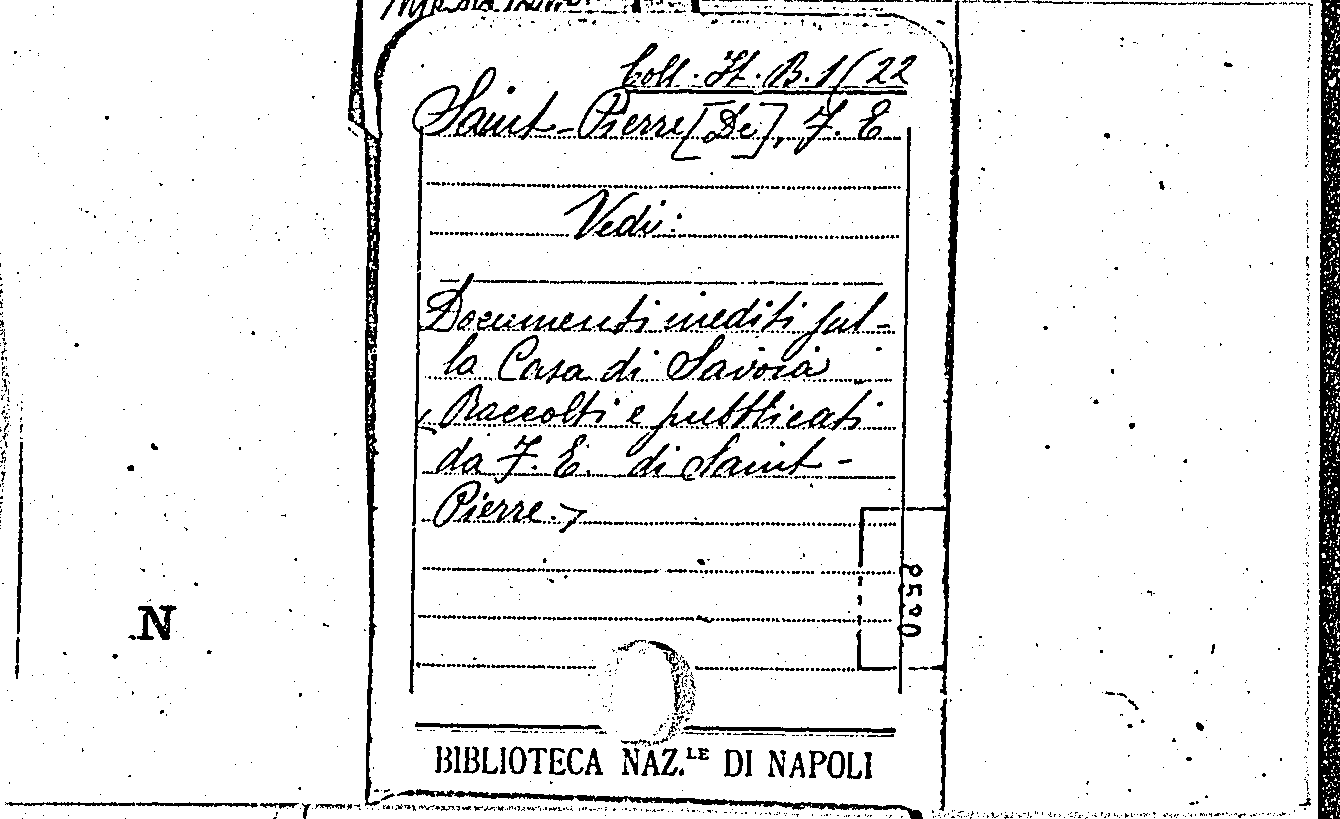 Coll. It. B. 1/22
Saint-Pierre [De], F. E.
Vedi:
Documenti inediti sul-
la Casa di Savoia
Raccolti e pubblicati
da F. E. di Saint-
Pierre.
2590
N
BIBLIOTECA NAZ.LE DI NAPOLI